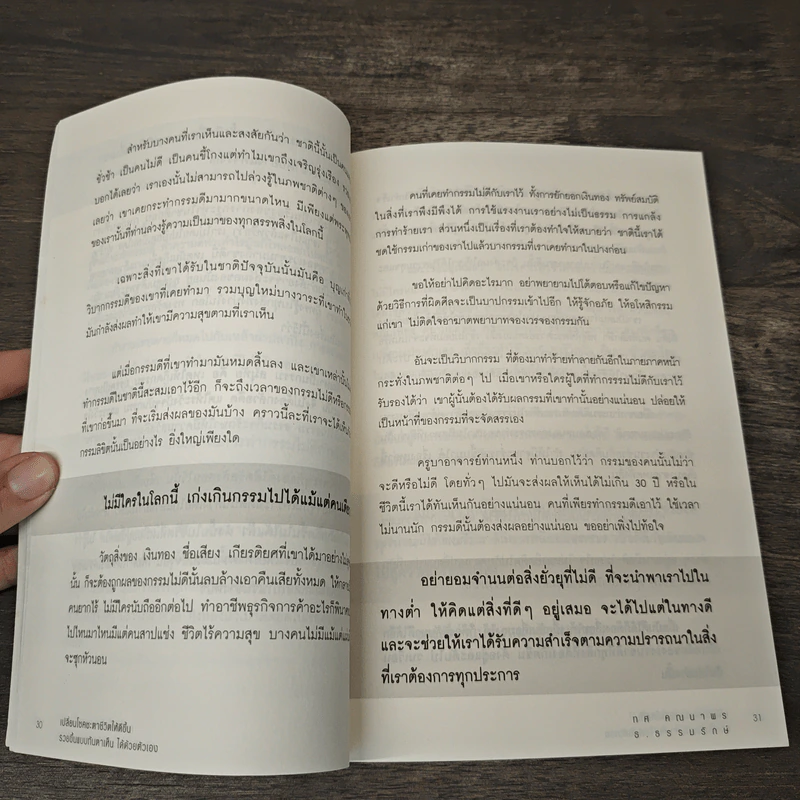 สำหรับบางคนที่เราเห็นและสงสัยกันว่า ชาตินี้นั้นเป็น
ชั่วช้า เป็นคนไม่ดี เป็นคนขี้โกงแต่ทำไมเขาถึงเจริญรุ่งเรือง
บอกได้เลยว่า เราเองนั้นไม่สามารถไปล่วงรู้ในภพชาติต่างๆ
เลยว่า เขาเคยกระทำกรรมดีมามากขนาดไหน มีเพียงแต่
ของเรานั้นที่ท่านล่วงรู้ความเป็นมาของทุกสรรพสิ่งในโลกนี้
เฉพาะสิ่งที่เขาได้รับในชาติปัจจุบันนั้นมันคือ บุญเก่า
วิบากกรรมดีของเขาที่เคยทำมา รวมบุญใหม่บางวาระที่เขาทำ
มันกำลังส่งผลทำให้เขามีความสุขตามที่เราเห็น
แต่เมื่อกรรมดีที่เขาทำมามันหมดสิ้นลง และเขาเหล่านั้น
ทำกรรมดีในชาตินี้สะสมเอาไว้อีก ก็จะถึงเวลาของกรรมไม่ดีหรือ
ที่เขาก่อขึ้นมา ที่จะเริ่มส่งผลของมันบ้าง คราวนี้ละที่เราจะได้เห็น
กรรมลิขิตนั้นเป็นอย่างไร ยิ่งใหญ่เพียงใด
ไม่มีใครในโลกนี้ เก่งเกินกรรมไปได้แม้แต่คนเดียว
วัตถุสิ่งของ เงินทอง ชื่อเสียง เกียรติยศที่เขาได้มาอย่าง
นั้น ก็จะต้องถูกผลของกรรมไม่ดีนั้นลบล้างเอาคืนเสียทั้งหมด ให้
คนยากไร้ ไม่มีใครนับถืออีกต่อไป ทำอาชีพธุรกิจการค้าอะไรก็
ไปไหนมาไหนมีแต่คนสาปแช่ง ชีวิตไร้ความสุข บางคนไม่มีแม้แต่
จะซุกหัวนอน
30
เปลี่ยนโชคชะตาชีวิตให้ดีขึ้น
รวยขึ้นแบบทันตาเห็น ได้ด้วยตัวเอง
คนที่เคยทำกรรมไม่ดีกับเราไว้ ทั้งการยักยอกเงินทอง ทรัพย์สมบัติ
ในสิ่งที่เราพึงมีพึงได้ การใช้แรงงานเราอย่างไม่เป็นธรรม การแกล้ง
การทำร้ายเรา ส่วนหนึ่งเป็นเรื่องที่เราต้องทำใจให้สบายว่า ชาตินี้เราได้
ชดใช้กรรมเก่าของเราไปแล้วบางกรรมที่เราเคยทำมาในปางก่อน
ขอให้อย่าไปคิดอะไรมาก อย่าพยายามไปโต้ตอบหรือแก้ไขปัญหา
ด้วยวิธีการที่ผิดศีลจะเป็นบาปกรรมเข้าไปอีก ให้รู้จักอภัย ให้อโหสิกรรม
แก่เขา ไม่ติดใจอาฆาตพยาบาทจองเวรจองกรรมกัน
อันจะเป็นวิบากกรรม ที่ต้องมาทำร้ายทำลายกันอีกในภายภาคหน้า
กระทั่งในภพชาติต่อๆ ไป เมื่อเขาหรือใครผู้ใดที่ทำกรรมไม่ดีกับเราไว้
รับรองได้ว่า เขาผู้นั้นต้องได้รับผลกรรมที่เขาทำนั้นอย่างแน่นอน ปล่อยให้
เป็นหน้าที่ของกรรมที่จะจัดสรรเอง
ครูบาอาจารย์ท่านหนึ่ง ท่านบอกไว้ว่า กรรมของคนนั้นไม่ว่า
จะดีหรือไม่ดี โดยทั่วๆ ไปมันจะส่งผลให้เห็นได้ไม่เกิน 30 ปี หรือใน
ชีวิตนี้เราได้ทันเห็นกันอย่างแน่นอน คนที่เพียรทำกรรมดีเอาไว้ ใช้เวลา
ไม่นานนัก กรรมดีนั้นต้องส่งผลอย่างแน่นอน ขออย่าเพิ่งไปท้อใจ
อย่ายอมจำนนต่อสิ่งยั่วยุที่ไม่ดี ที่จะนำพาเราไปใน
ทางต่ำ ให้คิดแต่สิ่งที่ดีๆ อยู่เสมอ จะได้ไปแต่ในทางดี
และจะช่วยให้เราได้รับความสำเร็จตามความปรารถนาในสิ่ง
ที่เราต้องการทุกประการ
ทศ คณนาพร
ธ.ธรรมรักษ์
31